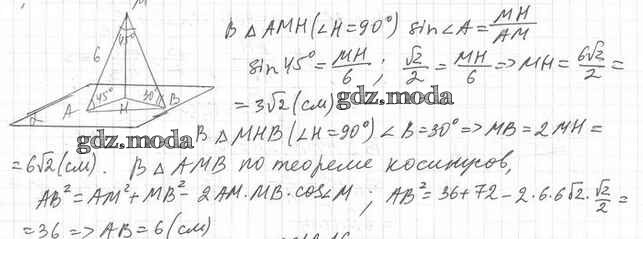 M
45°
6
A
45°
H
30°
B
α
В △ AMH (∠H=90°) sin∠A = MH/AM
sin 45° = MH/6 ; √2/2 = MH/6 => MH = 6√2/2 =
= 3√2 (см)
gdz.moda
gdz.moda
В △ MHB (∠H=90°) ∠B=30° => MB = 2MH =
= 6√2 (см). В △ AMB по теореме косинусов,
AB² = AM² + MB² - 2AM·MB·cos∠M ; AB² = 36+72-2·6·6√2·√2/2 =
= 36 => AB = 6 (см)